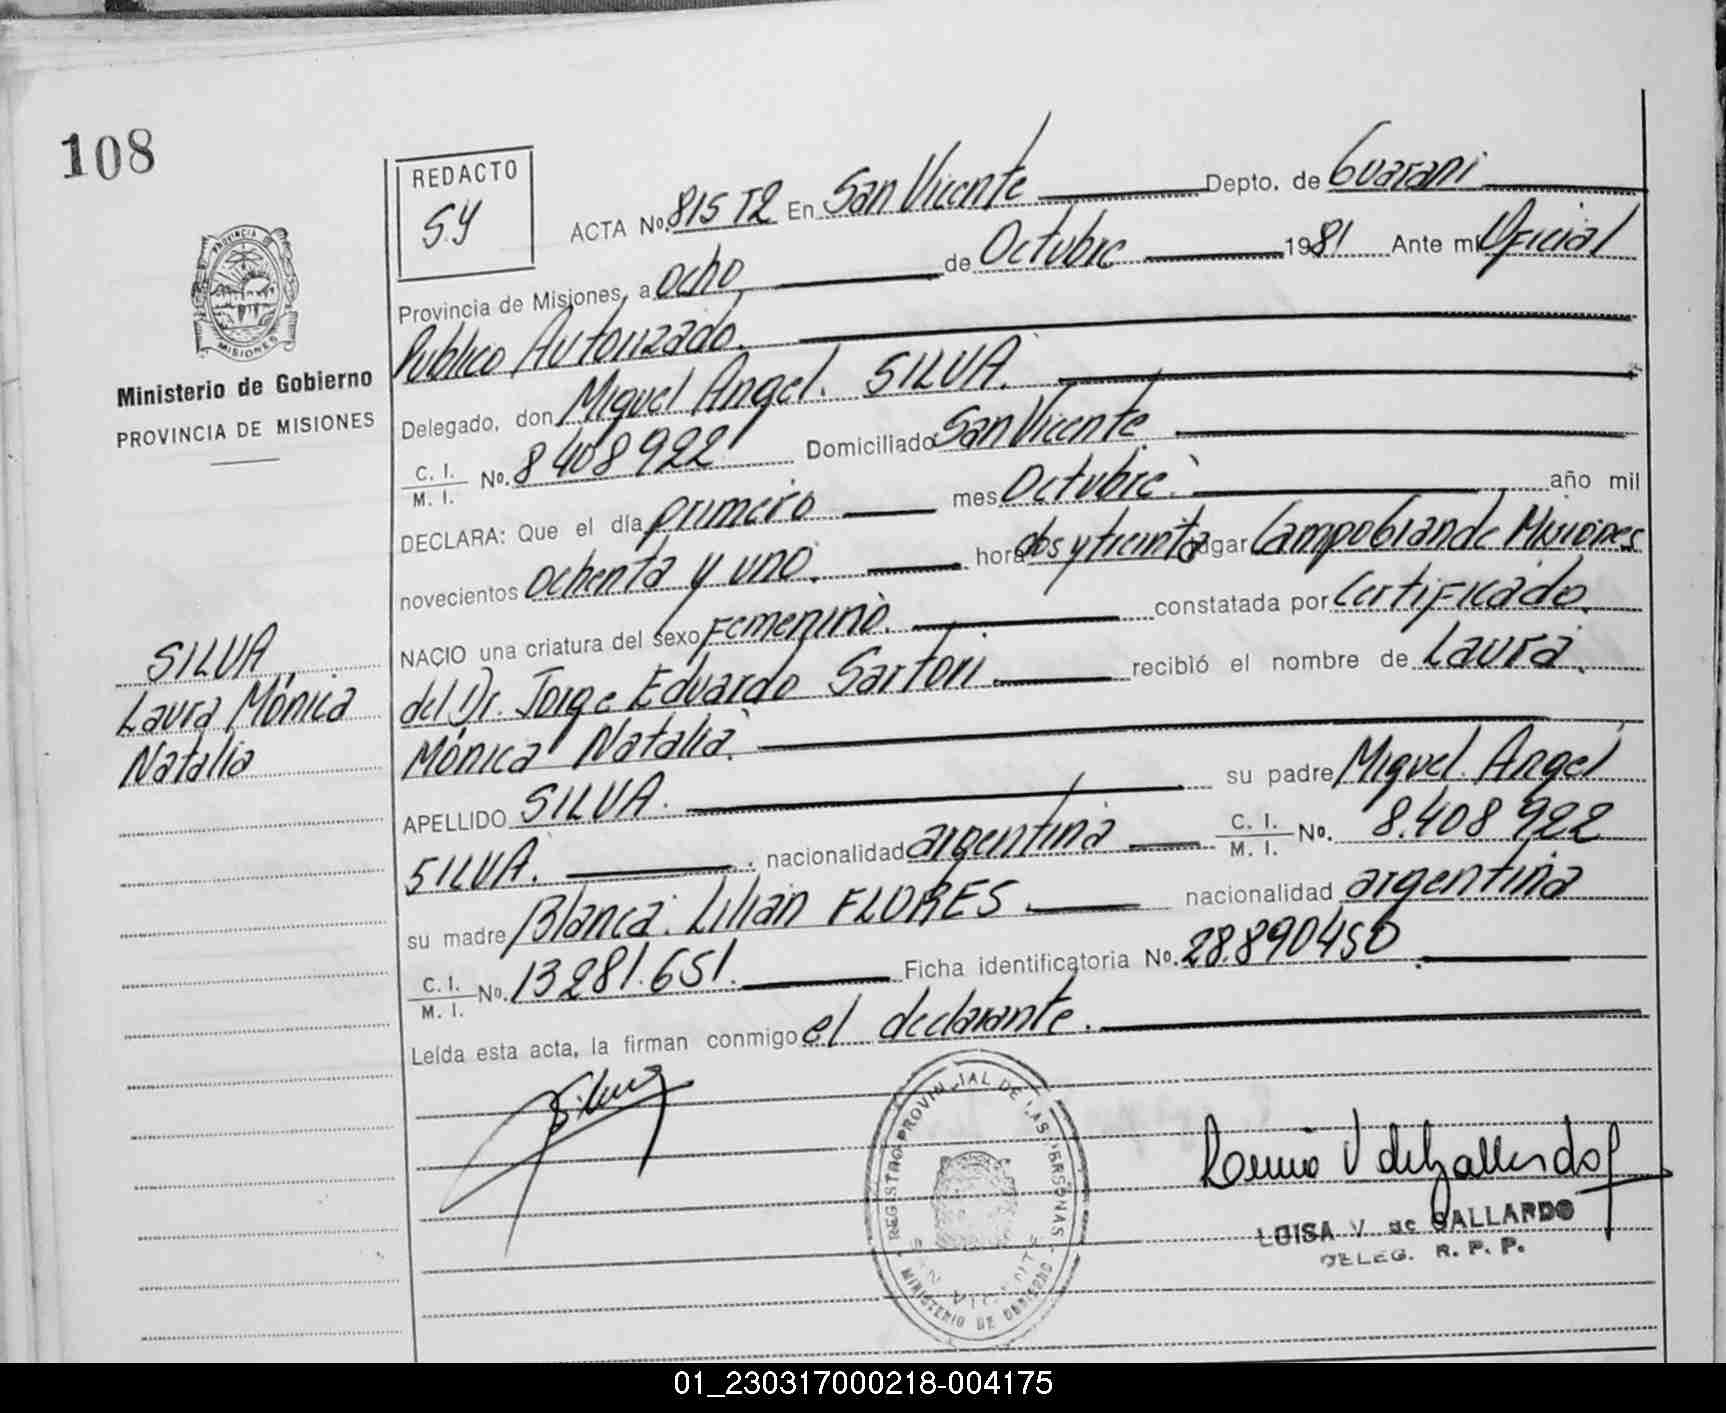 108
REDACTO
S.Y
ACTA No. 815 T2 En San Vicente Depto. de Guarani
Provincia de Misiones, a ocho de Octubre 1981 Ante mi Oficial
Publico Autorizado.
Delegado, don Miguel Angel. SILVA.
C. I. / M. I. No. 8408922 Domiciliado San Vicente
DECLARA: Que el día primero mes Octubre. año mil
novecientos ochenta y uno. hora dos y treinta lugar Campo Grande Misiones
NACIO una criatura del sexo Femenino. constatada por Certificado
del Dr. Jorge Eduardo Sartori. recibió el nombre de Laura.
Mónica Natalia.
APELLIDO SILVA. su padre Miguel. Angel
SILVA. nacionalidad argentina C. I. / M. I. No. 8.408922
su madre Blanca. Lilian FLORES. nacionalidad argentina
C. I. / M. I. No. 13281.651. Ficha identificatoria No. 28.890450
Leída esta acta, la firman conmigo el declarante.
PROVINCIA
MISIONES
Ministerio de Gobierno
PROVINCIA DE MISIONES
SILVA
Laura Mónica
Natalia
Silva
REGISTRO PROVINCIAL DE LAS PERSONAS
SAN VICENTE
MINISTERIO DE GOBIERNO
V de Gallardo
LUISA V. de GALLARDO
DELEG. R. P. P.
01_230317000218-004175